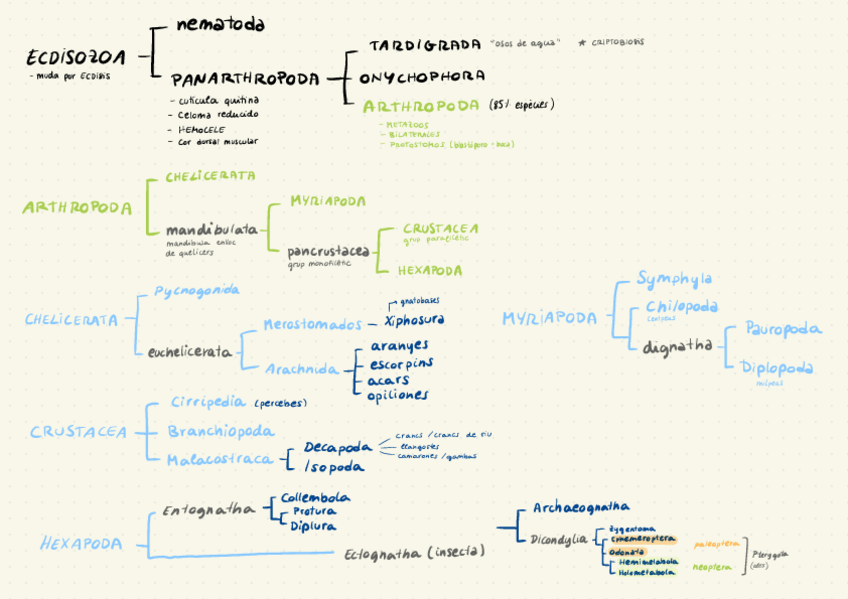 nematoda
ECDISOZOA
- muda por ECDISIS
PANARTHROPODA
- cutícula quitina
- Celoma reducido
- HEMOCELE
- Cor dorsal muscular
TARDIGRADA "osos de agua" * CRIPTOBIOSIS
ONYCHOPHORA
ARTHROPODA (85% espècies)
- METAZOOS
- BILATERALES
- PROTOSTOMOS (blastóporo → boca)
ARTHROPODA
CHELICERATA
mandibulata
mandíbula enlloc
de quelícers
MYRIAPODA
pancrustacea
grup monofilètic
CRUSTACEA
grup parafilètic
HEXAPODA
CHELICERATA
Pycnogonida
euchelicerata
Merostomados – Xiphosura
gnatobases
Arachnida
aranyes
escorpins
acars
opiliones
MYRIAPODA
Symphyla
Chilopoda
dignatha
Pauropoda
Diplopoda
CRUSTACEA
Cirripedia (percebes)
Branchiopoda
Malacostraca
Decapoda
crancs / crancs de riu
llangostes
camarones / gambas
Isopoda
HEXAPODA
Entognatha
Collembola
Protura
Diplura
Ectognatha (insecta)
Archaeognatha
Dicondylia
Zygentoma
Ephemeroptera
Odonata
paleoptera
Hemimetabola
Holometabola
neoptera
Pterygota